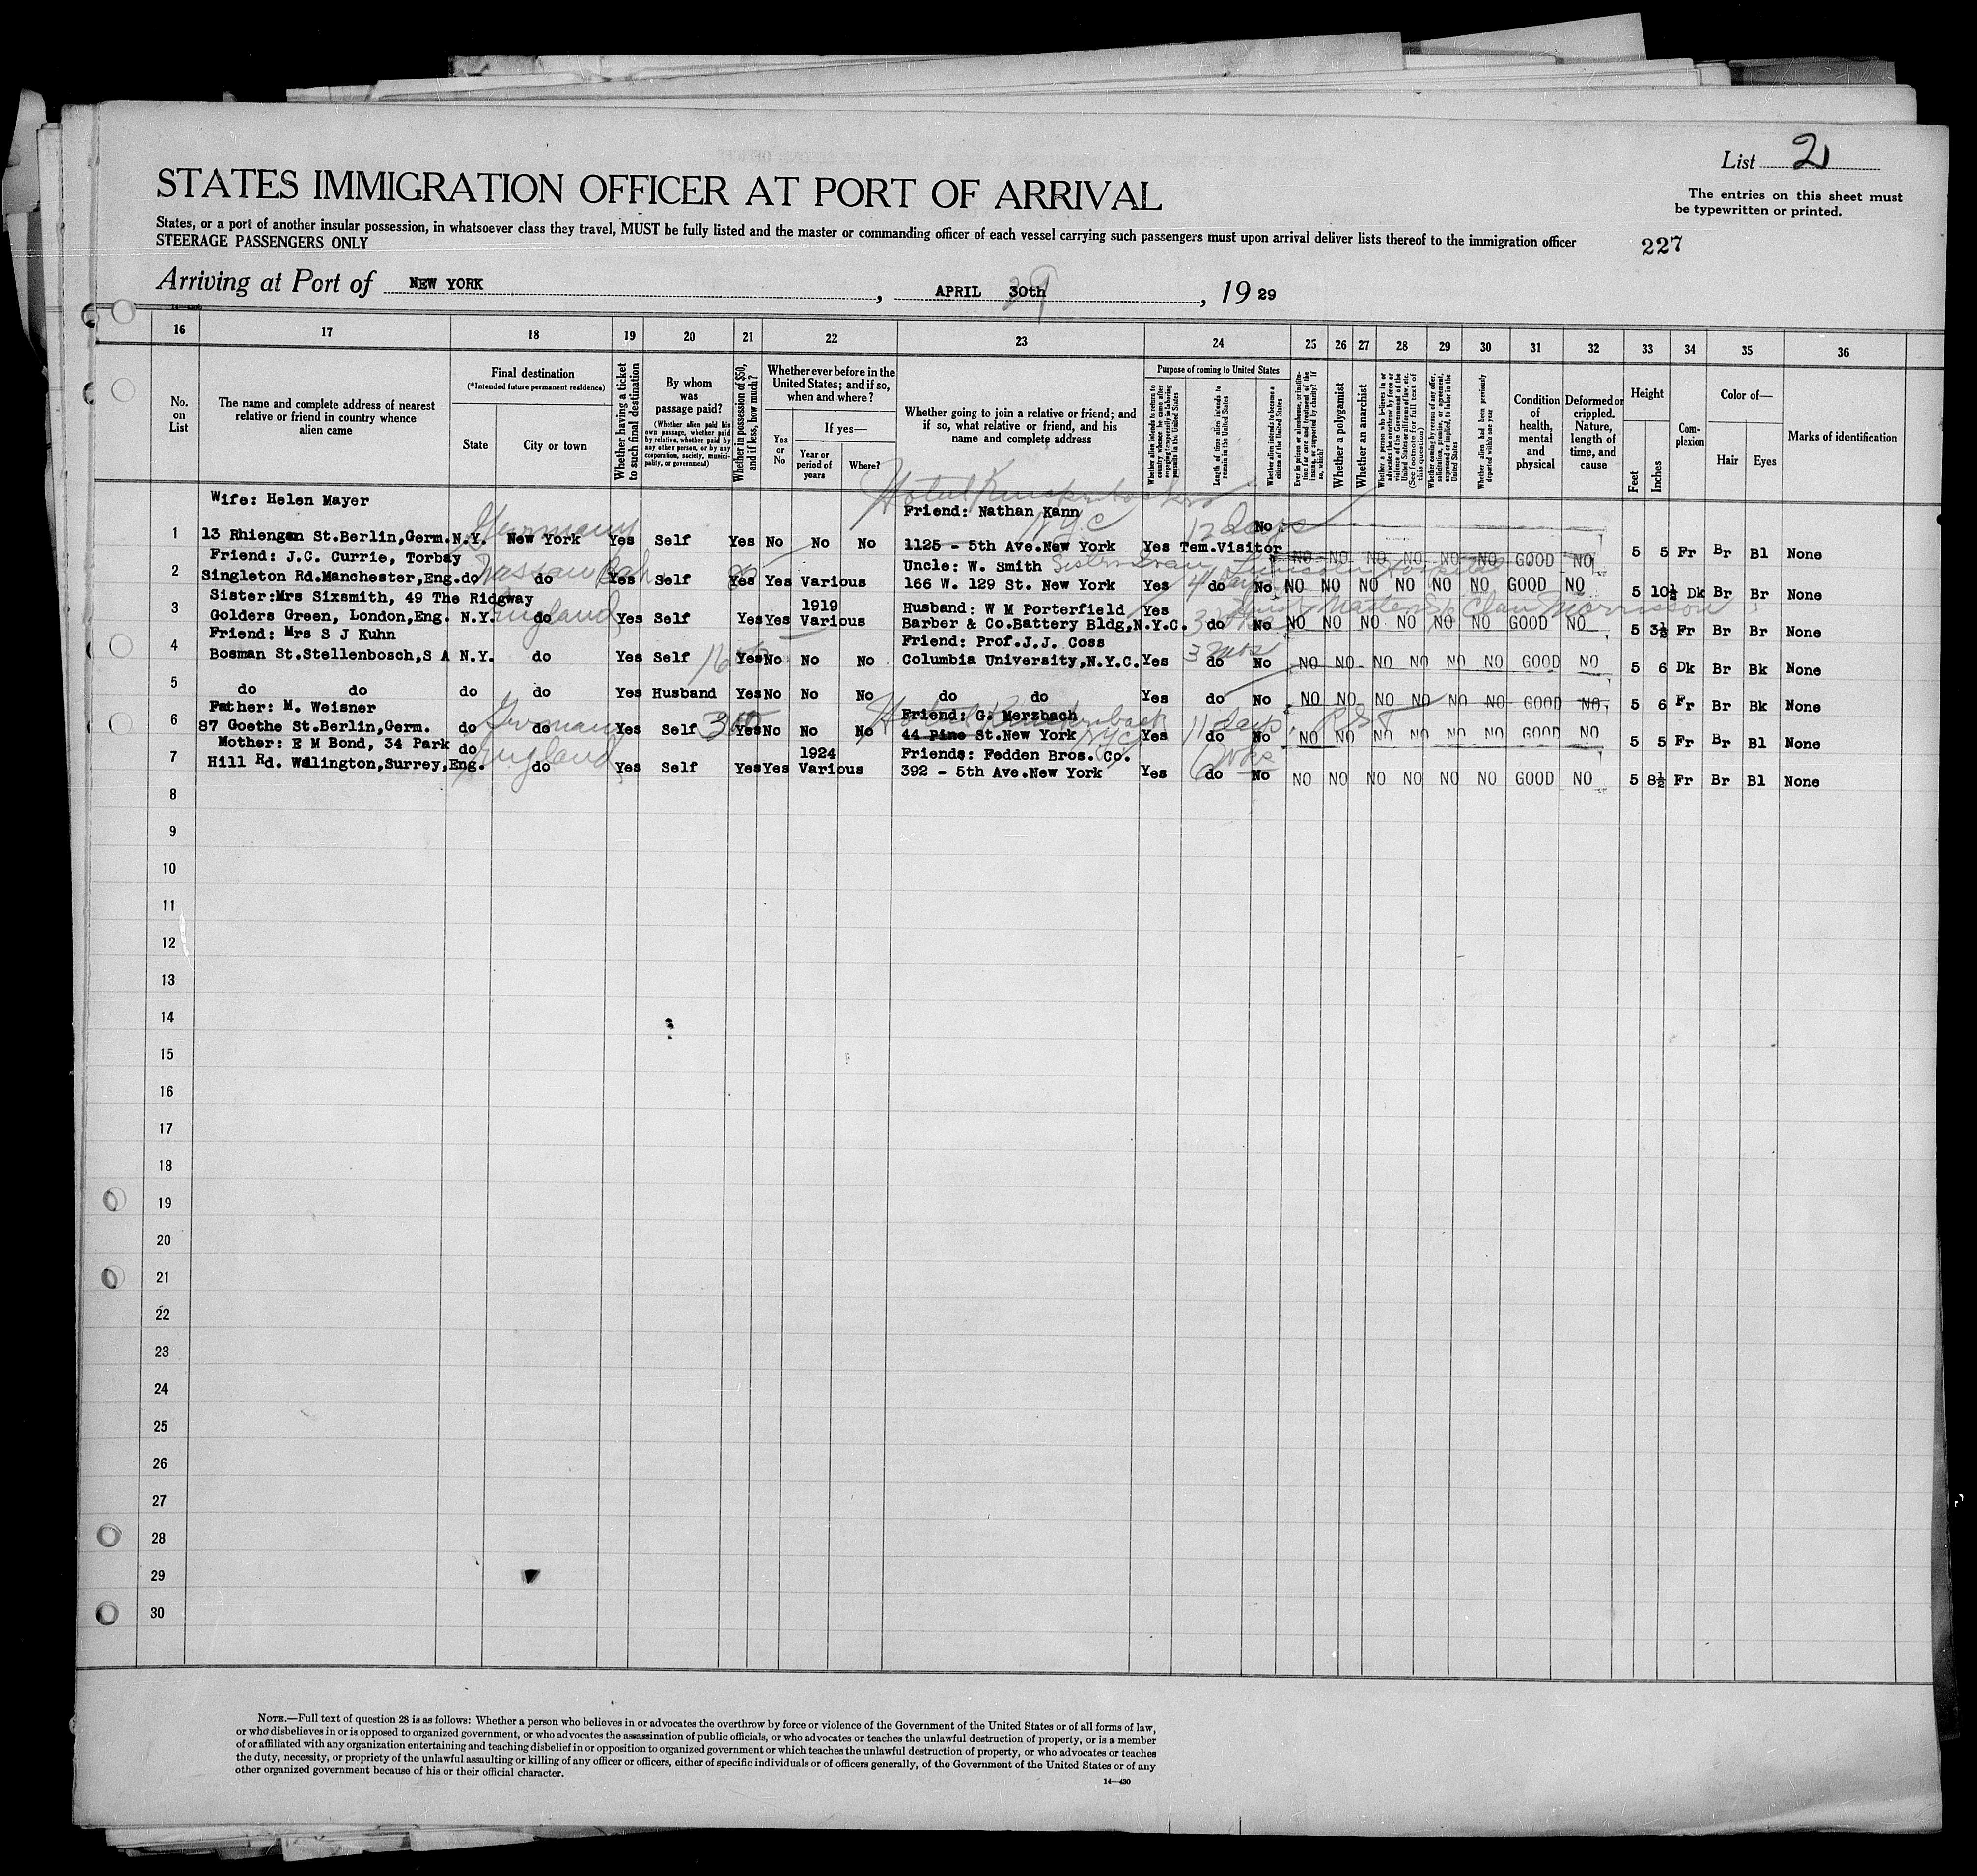 List 2
STATES IMMIGRATION OFFICER AT PORT OF ARRIVAL
The entries on this sheet must
be typewritten or printed.
States, or a port of another insular possession, in whatsoever class they travel, MUST be fully listed and the master or commanding officer of each vessel carrying such passengers must upon arrival deliver lists thereof to the immigration officer
STEERAGE PASSENGERS ONLY
227
Arriving at Port of NEW YORK, APRIL 30th, 1929
16 17 18 19 20 21 22 23 24 25 26 27 28 29 30 31 32 33 34 35 36
No. on List
The name and complete address of nearest relative or friend in country whence alien came
Final destination
(*Intended future permanent residence)
State
City or town
Whether having a ticket to such final destination
By whom was passage paid?
(Whether alien paid his own passage, whether paid by relative, whether paid by any other person, or by any corporation, society, municipality, or government)
Whether in possession of $50, and if less, how much?
Whether ever before in the United States; and if so, when and where?
Yes or No
If yes—
Year or period of years
Where?
Whether going to join a relative or friend; and if so, what relative or friend, and his name and complete address
Purpose of coming to United States
Whether alien intends to return to country whence he came after engaging temporarily in laboring pursuits in the United States
Length of time alien intends to remain in the United States
Whether alien intends to become a citizen of the United States
Ever in prison or almshouse, or institution for care and treatment of the insane, or supported by charity? If so, which?
Whether a polygamist
Whether an anarchist
Whether a person who believes in or advocates the overthrow by force or violence of the Government of the United States or all forms of law, etc. (See footnote for full text of this question)
Whether coming by reason of any offer, solicitation, promise, or agreement, expressed or implied, to labor in the United States
Whether alien had been previously deported within one year
Condition of health, mental and physical
Deformed or crippled. Nature, length of time, and cause
Height
Feet
Inches
Complexion
Color of—
Hair
Eyes
Marks of identification
Hotel Knickerbocker
Wife: Helen Mayer Friend: Nathan Kann NYC
Germany 12 days
1 13 Rhiengen St.Berlin,Germ. N.Y. New York Yes Self Yes No No No 1125 - 5th Ave.New York Yes Tem.Visitor No NO NO NO NO NO NO GOOD NO 5 5 Fr Br Bl None
Friend: J.C. Currie, Torbay Uncle: W. Smith
Nassau Bah
2 Singleton Rd.Manchester,Eng. do do Yes Self Yes Yes Various 166 W. 129 St. New York Yes do No NO NO NO NO NO NO GOOD NO 5 10½ Dk Br Br None
Sister:Mrs Sixsmith, 49 The Ridgway 1919 Husband: W M Porterfield Yes
England
3 Golders Green, London,Eng. N.Y. Yes Self Yes Yes Various Barber & Co.Battery Bldg,N.Y.C. do No NO NO NO NO NO NO GOOD NO 5 3½ Fr Br Br None
Friend: Mrs S J Kuhn Friend: Prof.J.J. Coss
3 mos
4 Bosman St.Stellenbosch,S A N.Y. do Yes Self Yes No No No Columbia University,N.Y.C. Yes do No NO NO NO NO NO NO GOOD NO 5 6 Dk Br Bk None
5 do do do do Yes Husband Yes No No No do do Yes do No NO NO NO NO NO NO GOOD NO 5 6 Fr Br Bk None
Father: M. Weisner Friend: G. Merzbach
Germany 11 days
6 87 Goethe St.Berlin,Germ. do do Yes Self Yes No No No 44 Pine St.New York NYC Yes do No NO NO NO NO NO NO GOOD NO 5 5 Fr Br Bl None
Mother: E M Bond, 34 Park do 1924 Friends: Fedden Bros. Co.
England
7 Hill Rd. Wallington,Surrey,Eng. do Yes Self Yes Yes Various 392 - 5th Ave.New York Yes do No NO NO NO NO NO NO GOOD NO 5 8½ Fr Br Bl None
8
9
10
11
12
13
14
15
16
17
18
19
20
21
22
23
24
25
26
27
28
29
30
NOTE.—Full text of question 28 is as follows: Whether a person who believes in or advocates the overthrow by force or violence of the Government of the United States or of all forms of law,
or who disbelieves in or is opposed to organized government, or who advocates the assassination of public officials, or who advocates or teaches the unlawful destruction of property, or is a member
of or affiliated with any organization entertaining and teaching disbelief in or opposition to organized government or which teaches the unlawful destruction of property, or who advocates or teaches
the duty, necessity, or propriety of the unlawful assaulting or killing of any officer or officers, either of specific individuals or of officers generally, of the Government of the United States or of any
other organized government because of his or their official character.
14—430